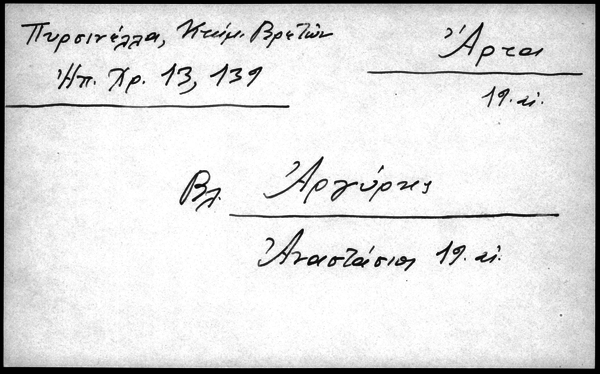 Πυρσινέλλα, Κτήμ. Βρετῶν
Ἠπ. Χρ. 13, 139
Ἄρτα
19. αἰ.
Βλ. Ἀργύρης
Ἀναστάσιος 19. αἰ.